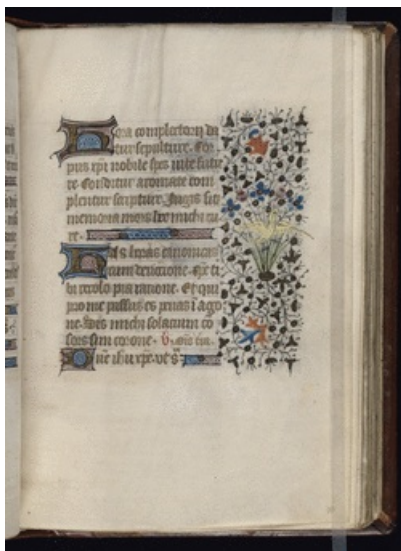 Hora completorii da
tur sepulture. Cor
pus xpi nobile spes vite futu
re. Conditur aromate com
plentur scripture. Iugis sit
memoria mors hec michi cu
re.
Has horas canonicas
cum devocione. xpe ti
bi recolo pia racione. Et qui
pro me passus es penas i ago
ne. Sis michi solacium co
sors sim corone. V.
Dne ihu xpe. ut sa